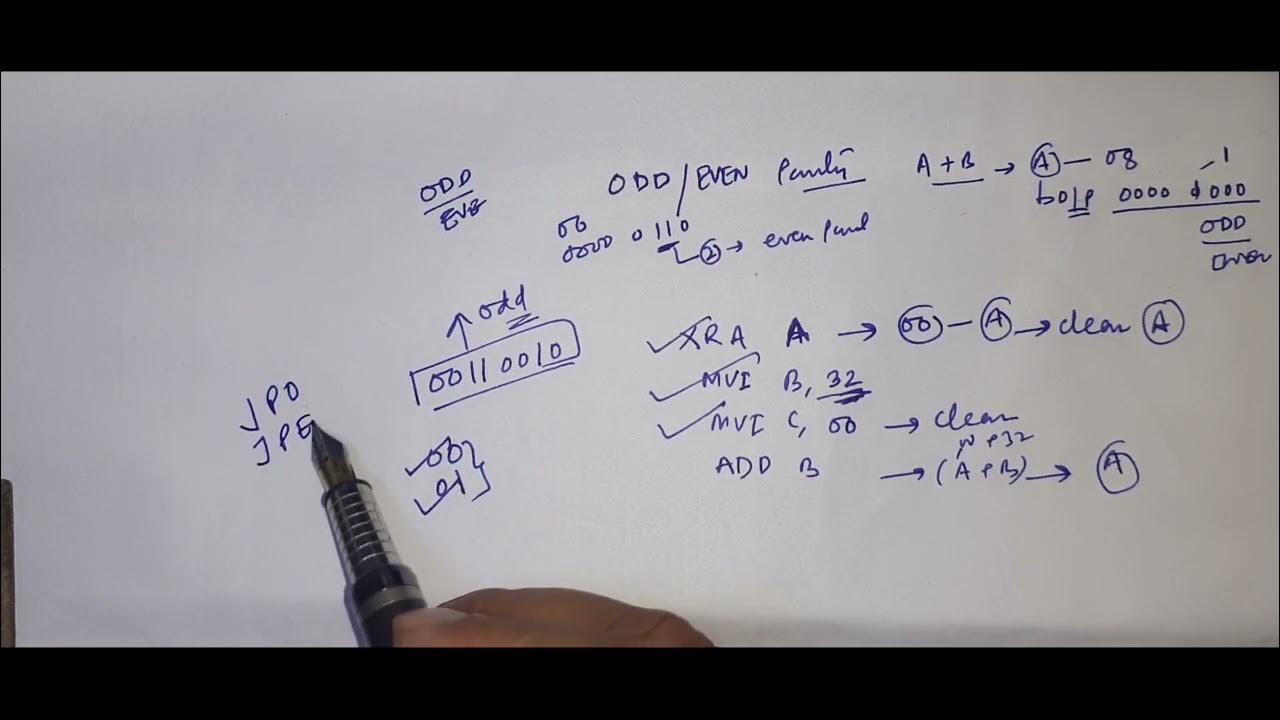 ODD
EVE
ODD/EVEN Parity
A+B → A — 08
1
0000 1000
ODD
00
0000 0110
2 → even
odd
00110010
XRA A → 00 — A → clear A
MVI B, 32
MVI C, 00 → clear
ADD B → (A+B) → A
JPO
JPE
00
01